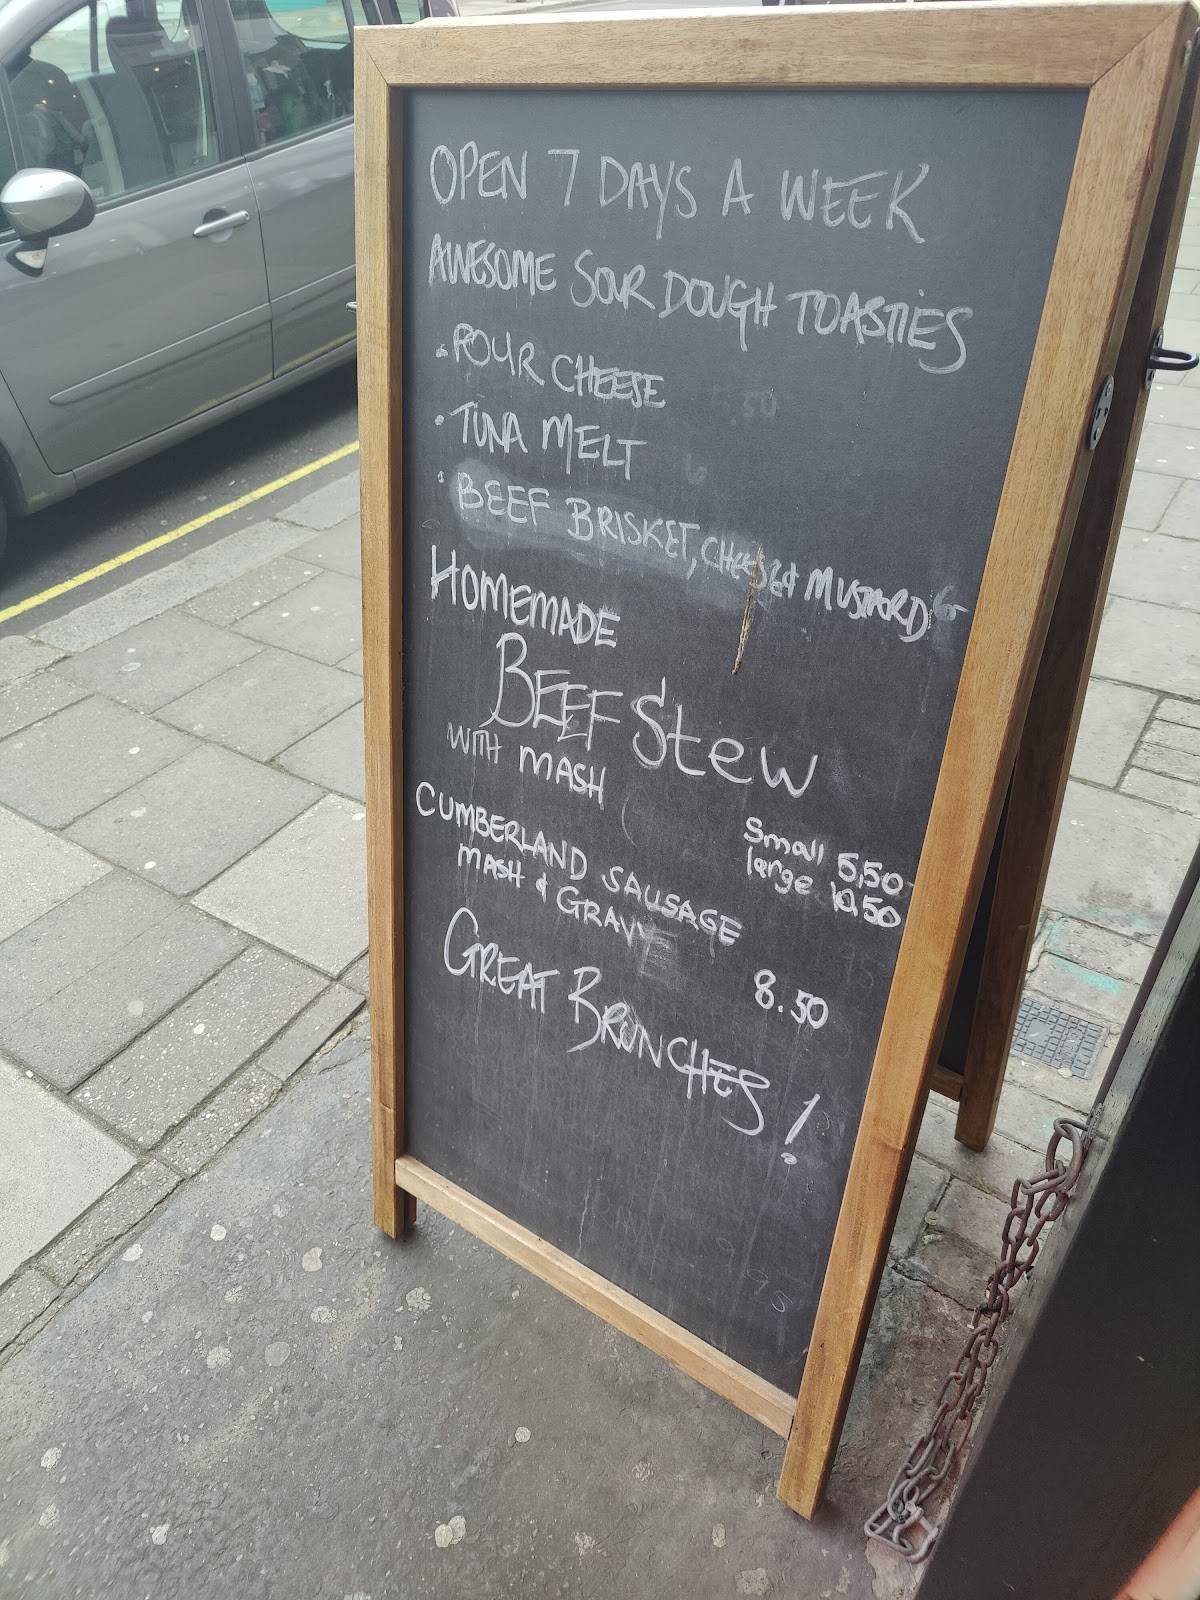 OPEN 7 DAYS A WEEK
AWESOME SOUR DOUGH TOASTIES
• FOUR CHEESE
• TUNA MELT
• BEEF BRISKET, CHEESE & MUSTARD
HOMEMADE
BEEF Stew
WITH MASH
Small 5,50
large 10,50
CUMBERLAND SAUSAGE
MASH & GRAVY
8.50
GREAT BRUNCHES!